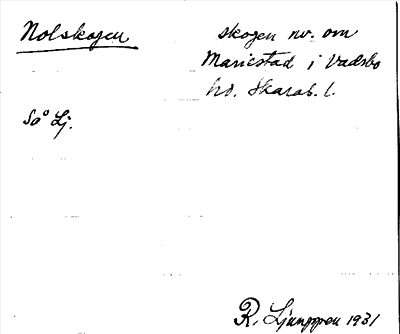 Nolskogen
skogen nv. om
Mariestad i Vadsbo
hd. Skarab. l.
Så Lj.
R. Ljunggren 1931